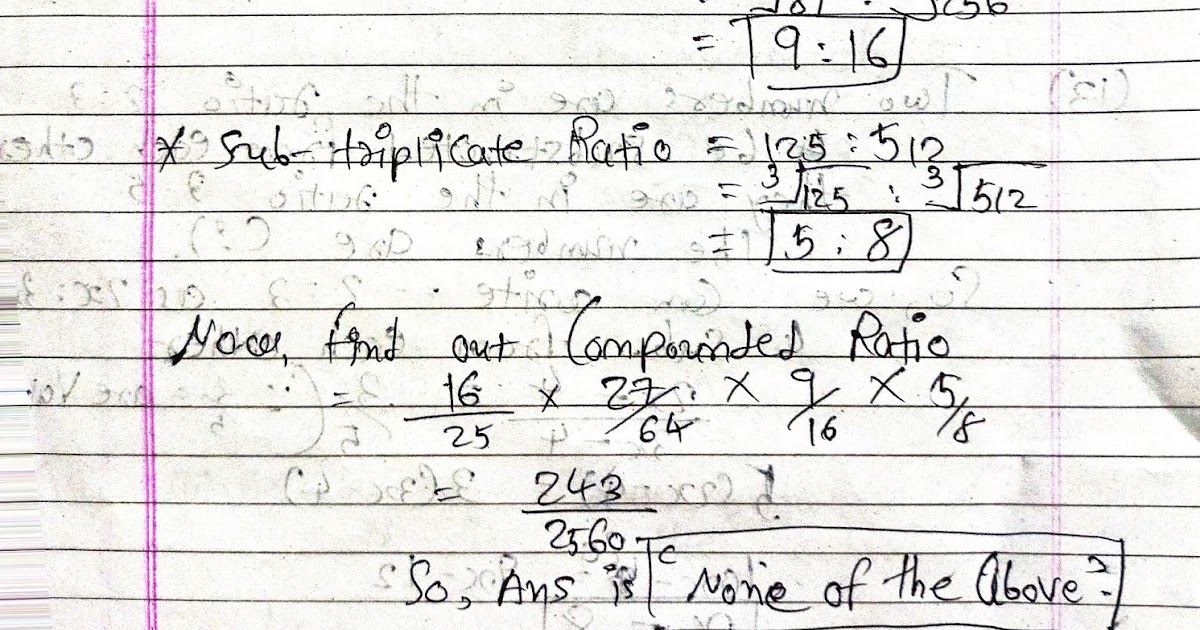 = 9 : 16
* Sub-triplicate Ratio = 125 : 512
= ³√125 : ³√512
= 5 : 8
Now, find out Compounded Ratio
= 16/25 × 27/64 × 9/16 × 5/8
= 243/2560
So, Ans is "None of the Above".